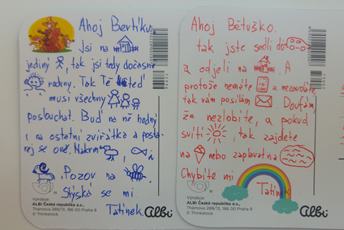 Ahoj Bertíku.
jsi na
jediný, tak jsi teď dočasně
rodiny. Tak Tě teď
musí všechny
poslouchat. Buď na ně hodný
i na ostatní zvířátka a poslou-
chej se o ně. Nakrm
Pozor na
Stýská se mi
Tatínek
Výrobce:
ALBI Česká republika a.s.,
Thámova 289/13, 186 00 Praha 8
© Thinkstock
albi
Ahoj Bětuško.
tak jste sedli do
a odjeli na . A
protože nemáte a nezavoláte
tak vám posílám . Doufám
že nezlobíte, a pokud
svítí , tak zajdete
na nebo zaplavat na
Chybíte mi
Tatínek
Výrobce:
ALBI Česká republika a.s.,
Thámova 289/13, 186 00 Praha 8
© Thinkstock
albi